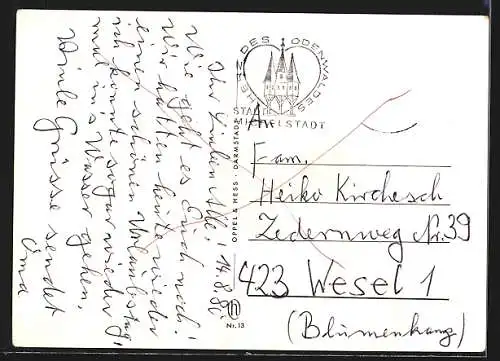 Ihr Lieben Alle! 14.8.80
Wie geht es Euch noch?
Wir hatten heute wieder
einen schönen Urlaubstag,
ich konnte sogar wieder
mal ins Wasser gehen.
Viele Grüsse sendet
Oma
HERZ DES ODENWALDES
STADT
MICHELSTADT
OPPEL & HESS · DARMSTADT
Nr. 13
An
Fam.
Heiko Kirchesch
Zedernweg Nr. 39
423 Wesel 1
(Blumenkamp)